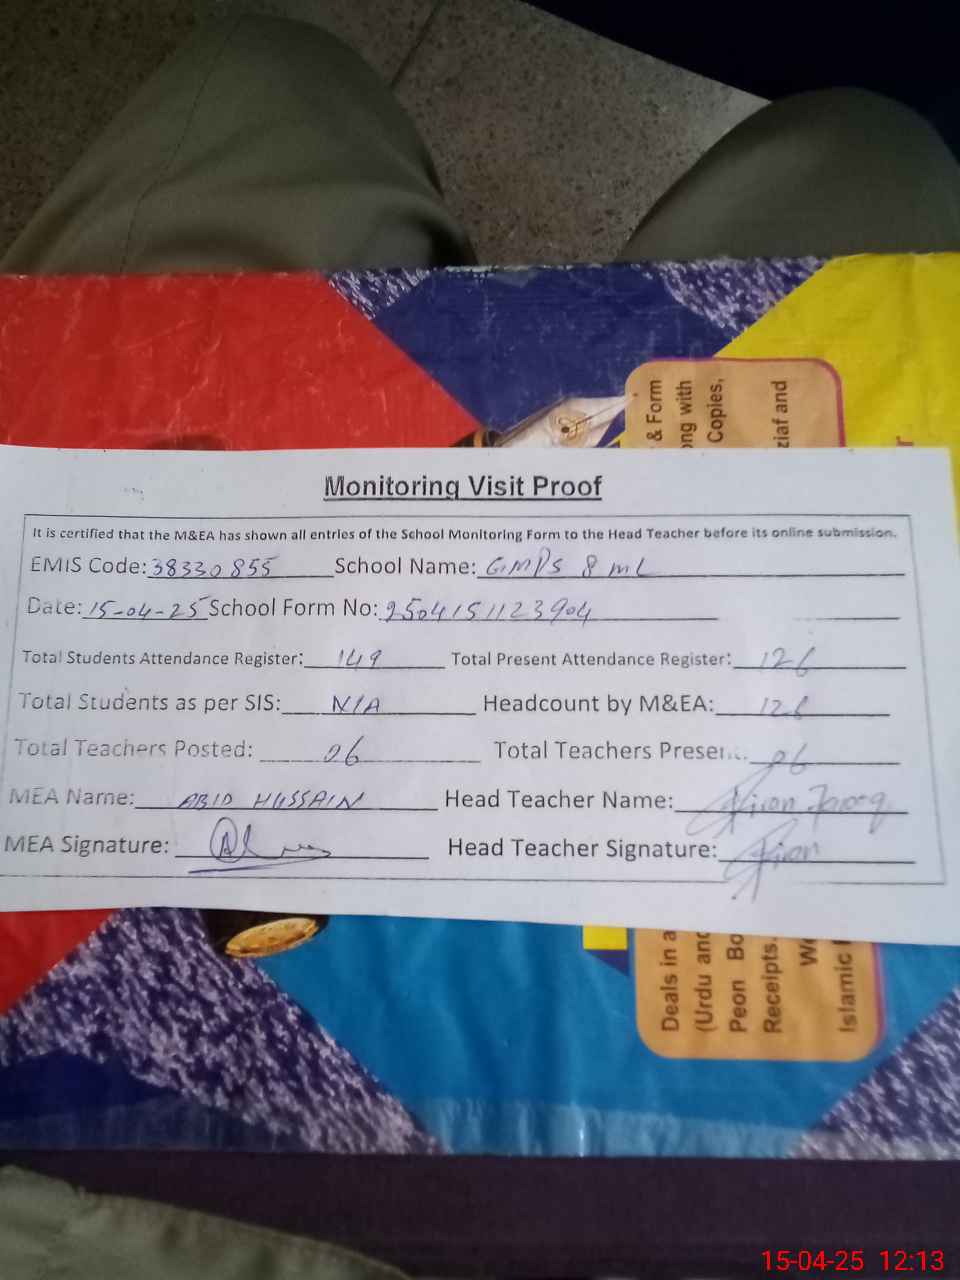 & Form
ng with
Copies,
ziaf and
r
Monitoring Visit Proof
It is certified that the M&EA has shown all entries of the School Monitoring Form to the Head Teacher before its online submission.
EMIS Code: 38330855 School Name: GMPS 8 ML
Date: 15-04-25 School Form No: 2504151123904
Total Students Attendance Register: 149 Total Present Attendance Register: 126
Total Students as per SIS: N/A Headcount by M&EA: 126
Total Teachers Posted: 06 Total Teachers Present: 06
MEA Name: ABID HUSSAIN Head Teacher Name: Kiran Farooq
MEA Signature: Head Teacher Signature: Kiran
Deals in a
(Urdu and
Peon Bo
Receipts.
We
Islamic
15-04-25 12:13